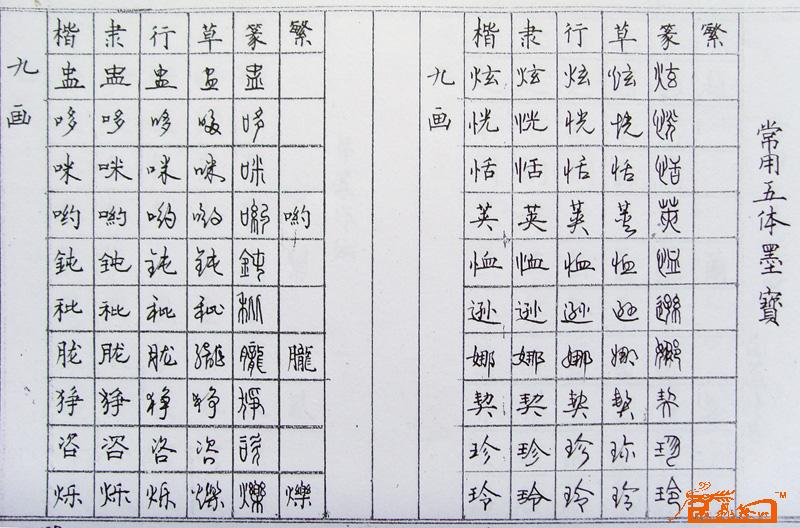 常用五体墨寶
九画
楷 隶 行 草 篆 繁
炫 炫 炫 炫 炫
恍 恍 恍 恍
恬 恬 恬 恬 恬
英 英 英 英 英
恤 恤 恤 恤 恤
逊 逊 逊 逊 遜
娜 娜 娜 娜 娜
契 契 契 契 契
珍 珍 珍 珍 珍
玲 玲 玲 玲 玲
九画
楷 隶 行 草 篆 繁
盅 盅 盅 盅 盅
哆 哆 哆 哆 哆
咪 咪 咪 咪 咪
哟 喲 喲 喲 喲 喲
鈍 鈍 鈍 鈍 鈍
秕 秕 秕 秕 秕
胧 胧 胧 朧 朧 朧
狰 狰 狰 狰 猙
咨 咨 咨 咨
烁 烁 烁 爍 爍 爍